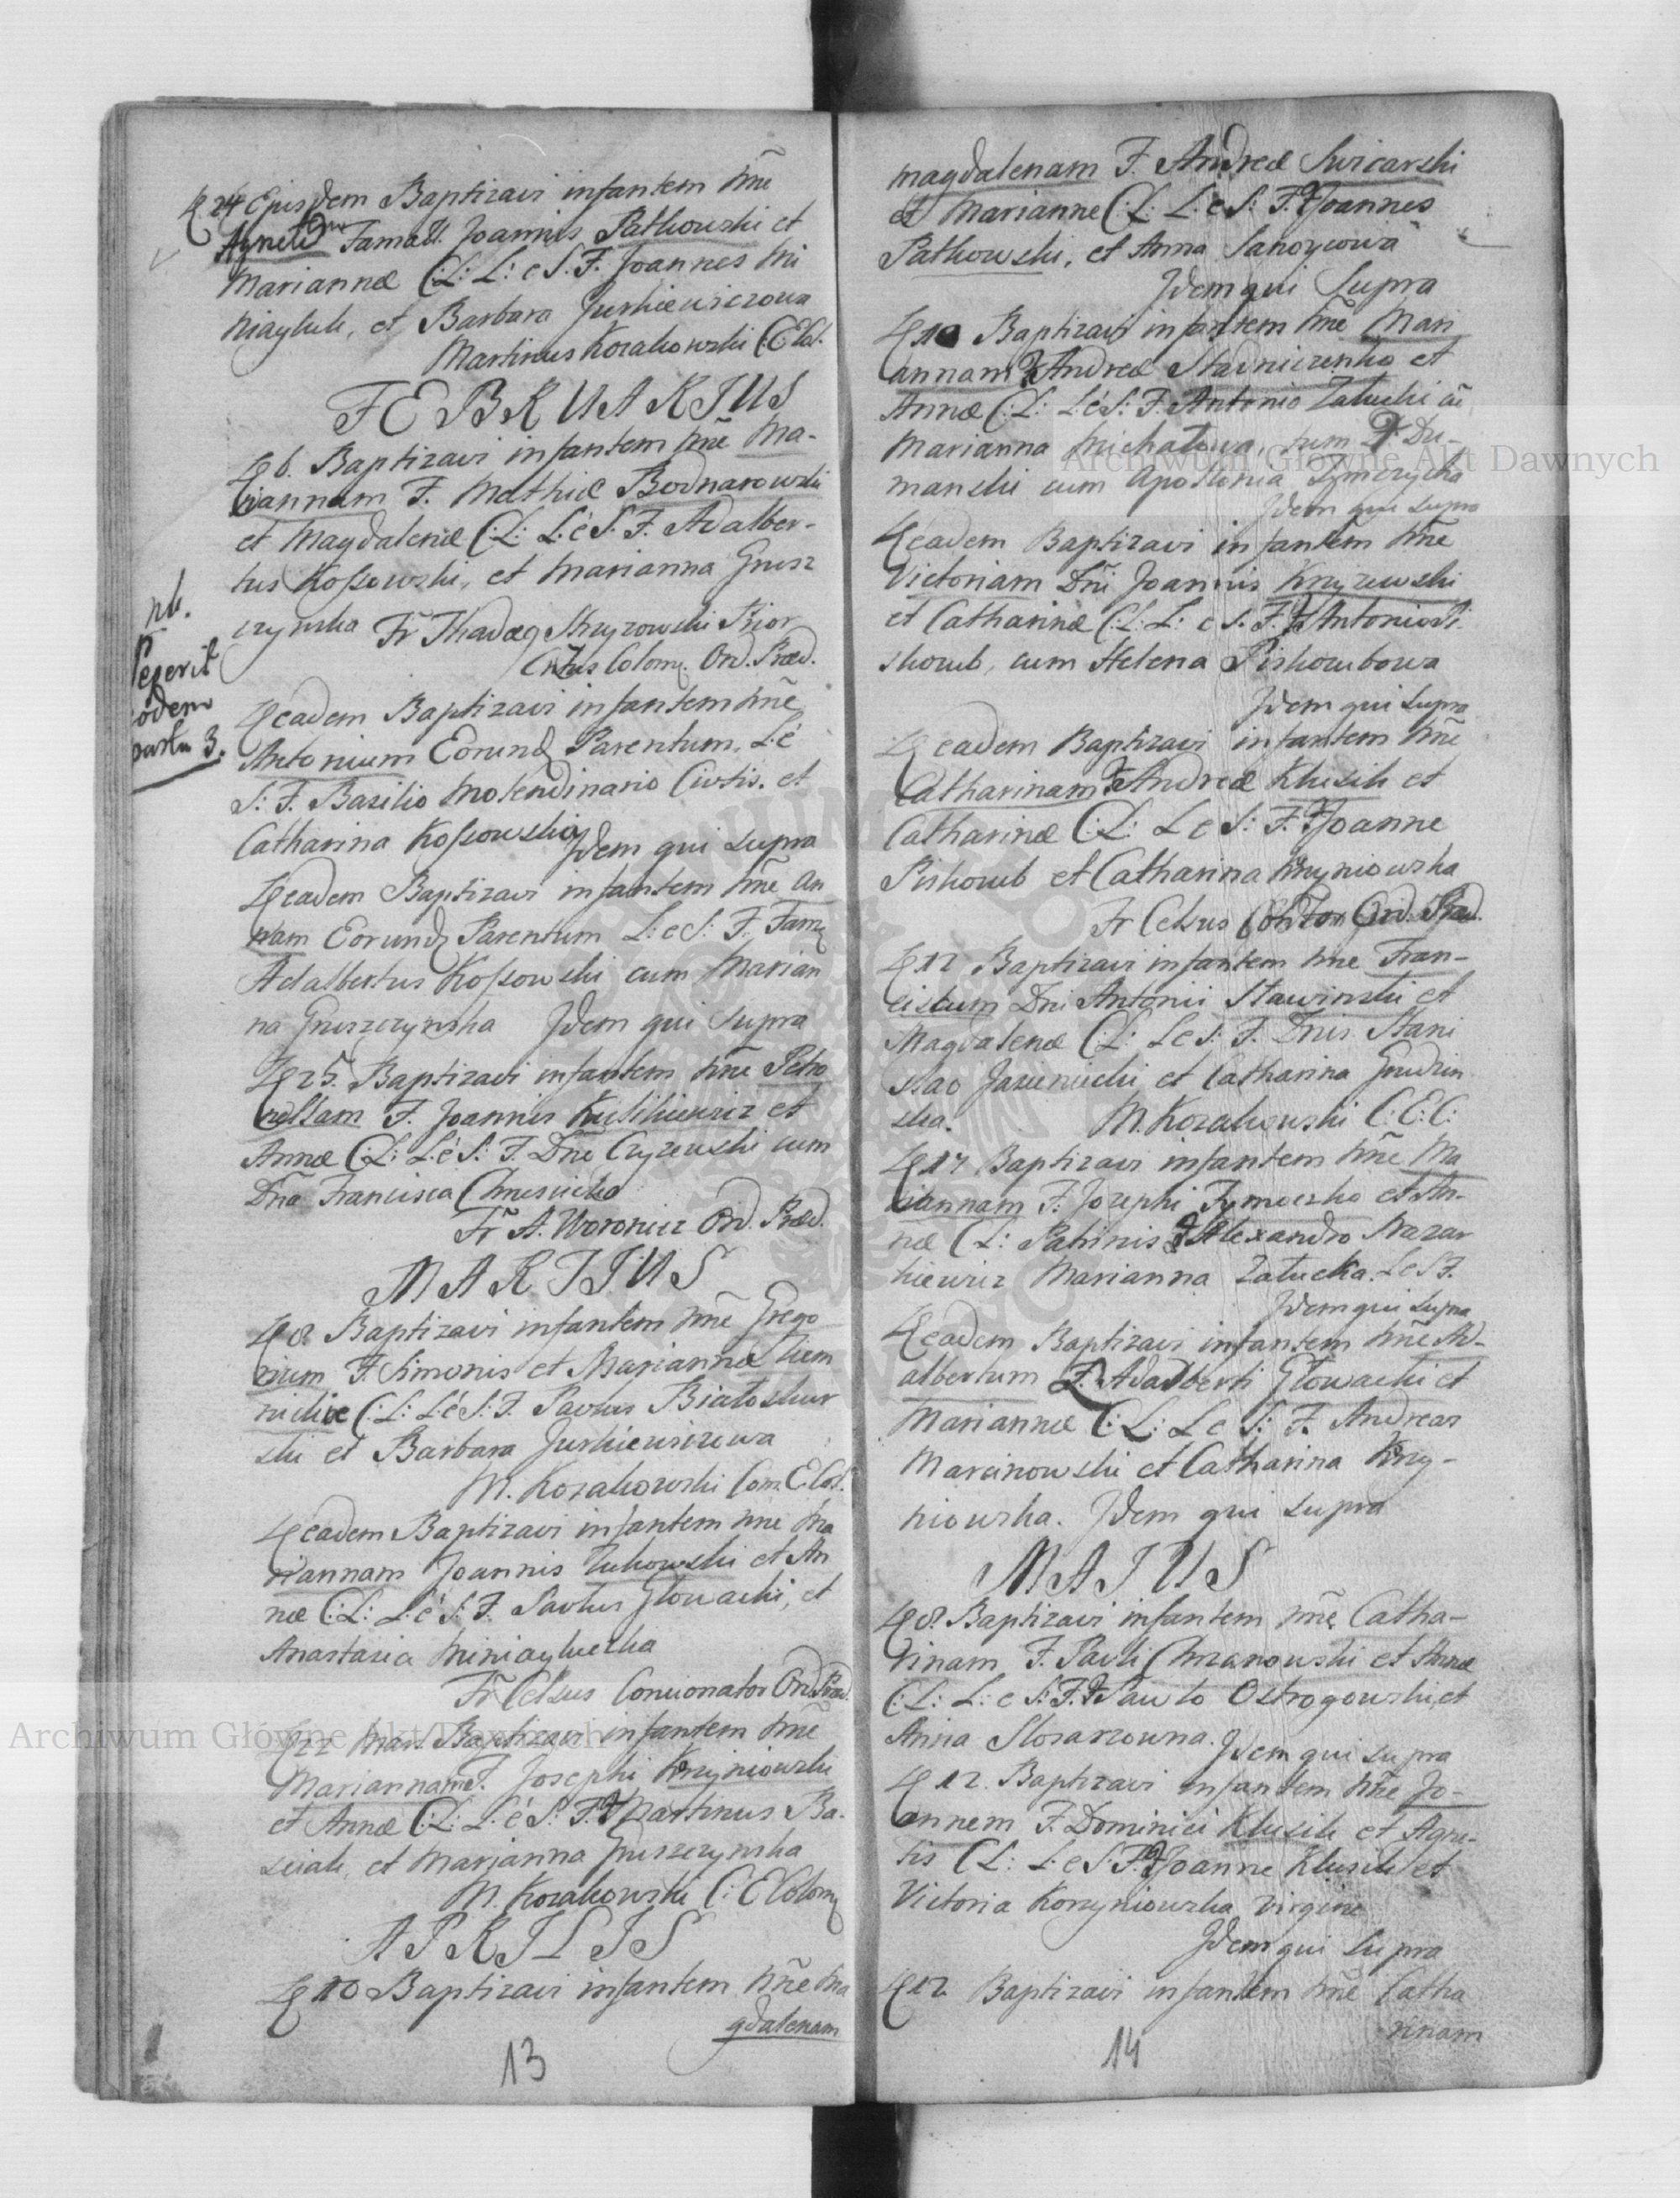 24 Ejusdem Baptizavi infantem nñe
Agnetem Famati Joannis Patkowski et
Mariannæ C:L: L: e S. F. Joannes Mi
niayluk, et Barbara Jurkiewiczowa
Martinus Kozakowski C E Col.
FEBRUARIUS
6. Baptizavi infantem nñe Ma-
riannam F. Mathiæ Bodnarowski
et Magdalenæ C:L: L: é S. F. Adalber-
tus Kossowski, et Marianna Grusz
czynska Fr Thadæg Skrzyrowski Prior
Colom. Ord. Præd.
nb.
Peperit
eodem
partu 3.
eadem Baptizavi infantem nñe
Antonium Eorund Parentum. L: é
S: F. Basilio Molendinario Civitis. et
Catharina Kossowska Idem qui supra
eadem Baptizavi infantem nñe An
nam Eorund Parentum L: e S: F. Fam
Adalbertus Kossowski cum Marian
na Gruszczynska Idem qui supra
25. Baptizavi infantem nñe Petro
nellam F. Joannis Kulikiewicz et
Annæ C:L: L: é S: F. Dñe Czyzewski cum
Dña Francisca Chmesnicka
Fr A. Woronicz Ord. Præd.
MARTIUS
8 Baptizavi infantem nñe Grego
rium F. Simonis et Mariannæ Siem
nickie C:L: L: é S: F. Paulus Białoskur
ski et Barbara Jurkiewiczowa
M. Kozakowski Com. E Col.
eadem Baptizavi infantem nñe Ma
riannam Joannis Zukowski et An
næ C:L: L: é S: F. Paulus Głowacki, et
Anastasia Miniayluczka
Fr Celsus Concionator Ord Præd.
22 Mart. Baptizavi infantem nñe
Mariannam F. Josephi Krzyniowski
et Annæ C:L: L: é S: F. Martinus Ba-
sciak, et Marianna Gruszczynska
M. Kozakowski C: E Colom
APRILIS
10 Baptizavi infantem nñe Ma
gdalenam
13
Magdalenam F. Andreæ Swicarski
et Marianne C:L: L: e S: F. Joannes
Patkowski, et Anna Sanoycowa
Idem qui Supra
10 Baptizavi infantem nñe Mari
annam Andreæ Stadniczenko et
Annæ C:L: L: é S: F. Antonio Załucki cũ
Marianna Michałowa, tum D. Du-
manski cum Apollonia Szymczycha
Idem qui supra
eadem Baptizavi infantem nñe
Victoriam Dñi Joannis Knyzewski
et Catharinæ C:L: L: e S. F. Antonio Pi-
skozub, cum Helena Piskozubowa
Idem qui supra
eadem Baptizavi infantem nñe
Catharinam Andreæ Klusik et
Catharinæ C:L: L e S: F. Joanne
Piskozub et Catharina Krzyniowska
Fr Celsus Ord. Præd.
12 Baptizavi infantem nñe Fran-
ciscum Dni Antonii Stawinski et
Magdalenæ C:L: L e S: F. Dnis Stani
slao Jasienicki et Catharina Grudzin
ska. M. Kozakowski C: E: C:
17 Baptizavi infantem nñe Ma
riannam F. Josephi Tymoczko et An-
næ C L: Patrinis Alexandro Nazar
kiewicz Marianna Załucka. L e S F.
Idem qui supra
eadem Baptizavi infantem nñe Ad-
albertum F. Adalberti Głowacki et
Mariannæ C:L: L e S: F. Andreas
Marcinowski et Catharina Krzy-
niowska. Idem qui supra
MAIUS
8. Baptizavi infantem nñe Catha-
rinam F. Pauli Chrzanowski et Annæ
C:L: L: e S: F. Pawło Ostrogowski, et
Anna Slosarzowna. Idem qui supra
12. Baptizavi infantem nñe Jo-
annem F. Dominici Klusik et Agne-
tis C L: L: e S: F. Joanne Klusik et
Victoria Korzyniowska virgine
Idem qui supra
12 Baptizavi infantem nñe Catha
rinam
14
Archiwum Główne Akt Dawnych
Archiwum Główne Akt Dawnych